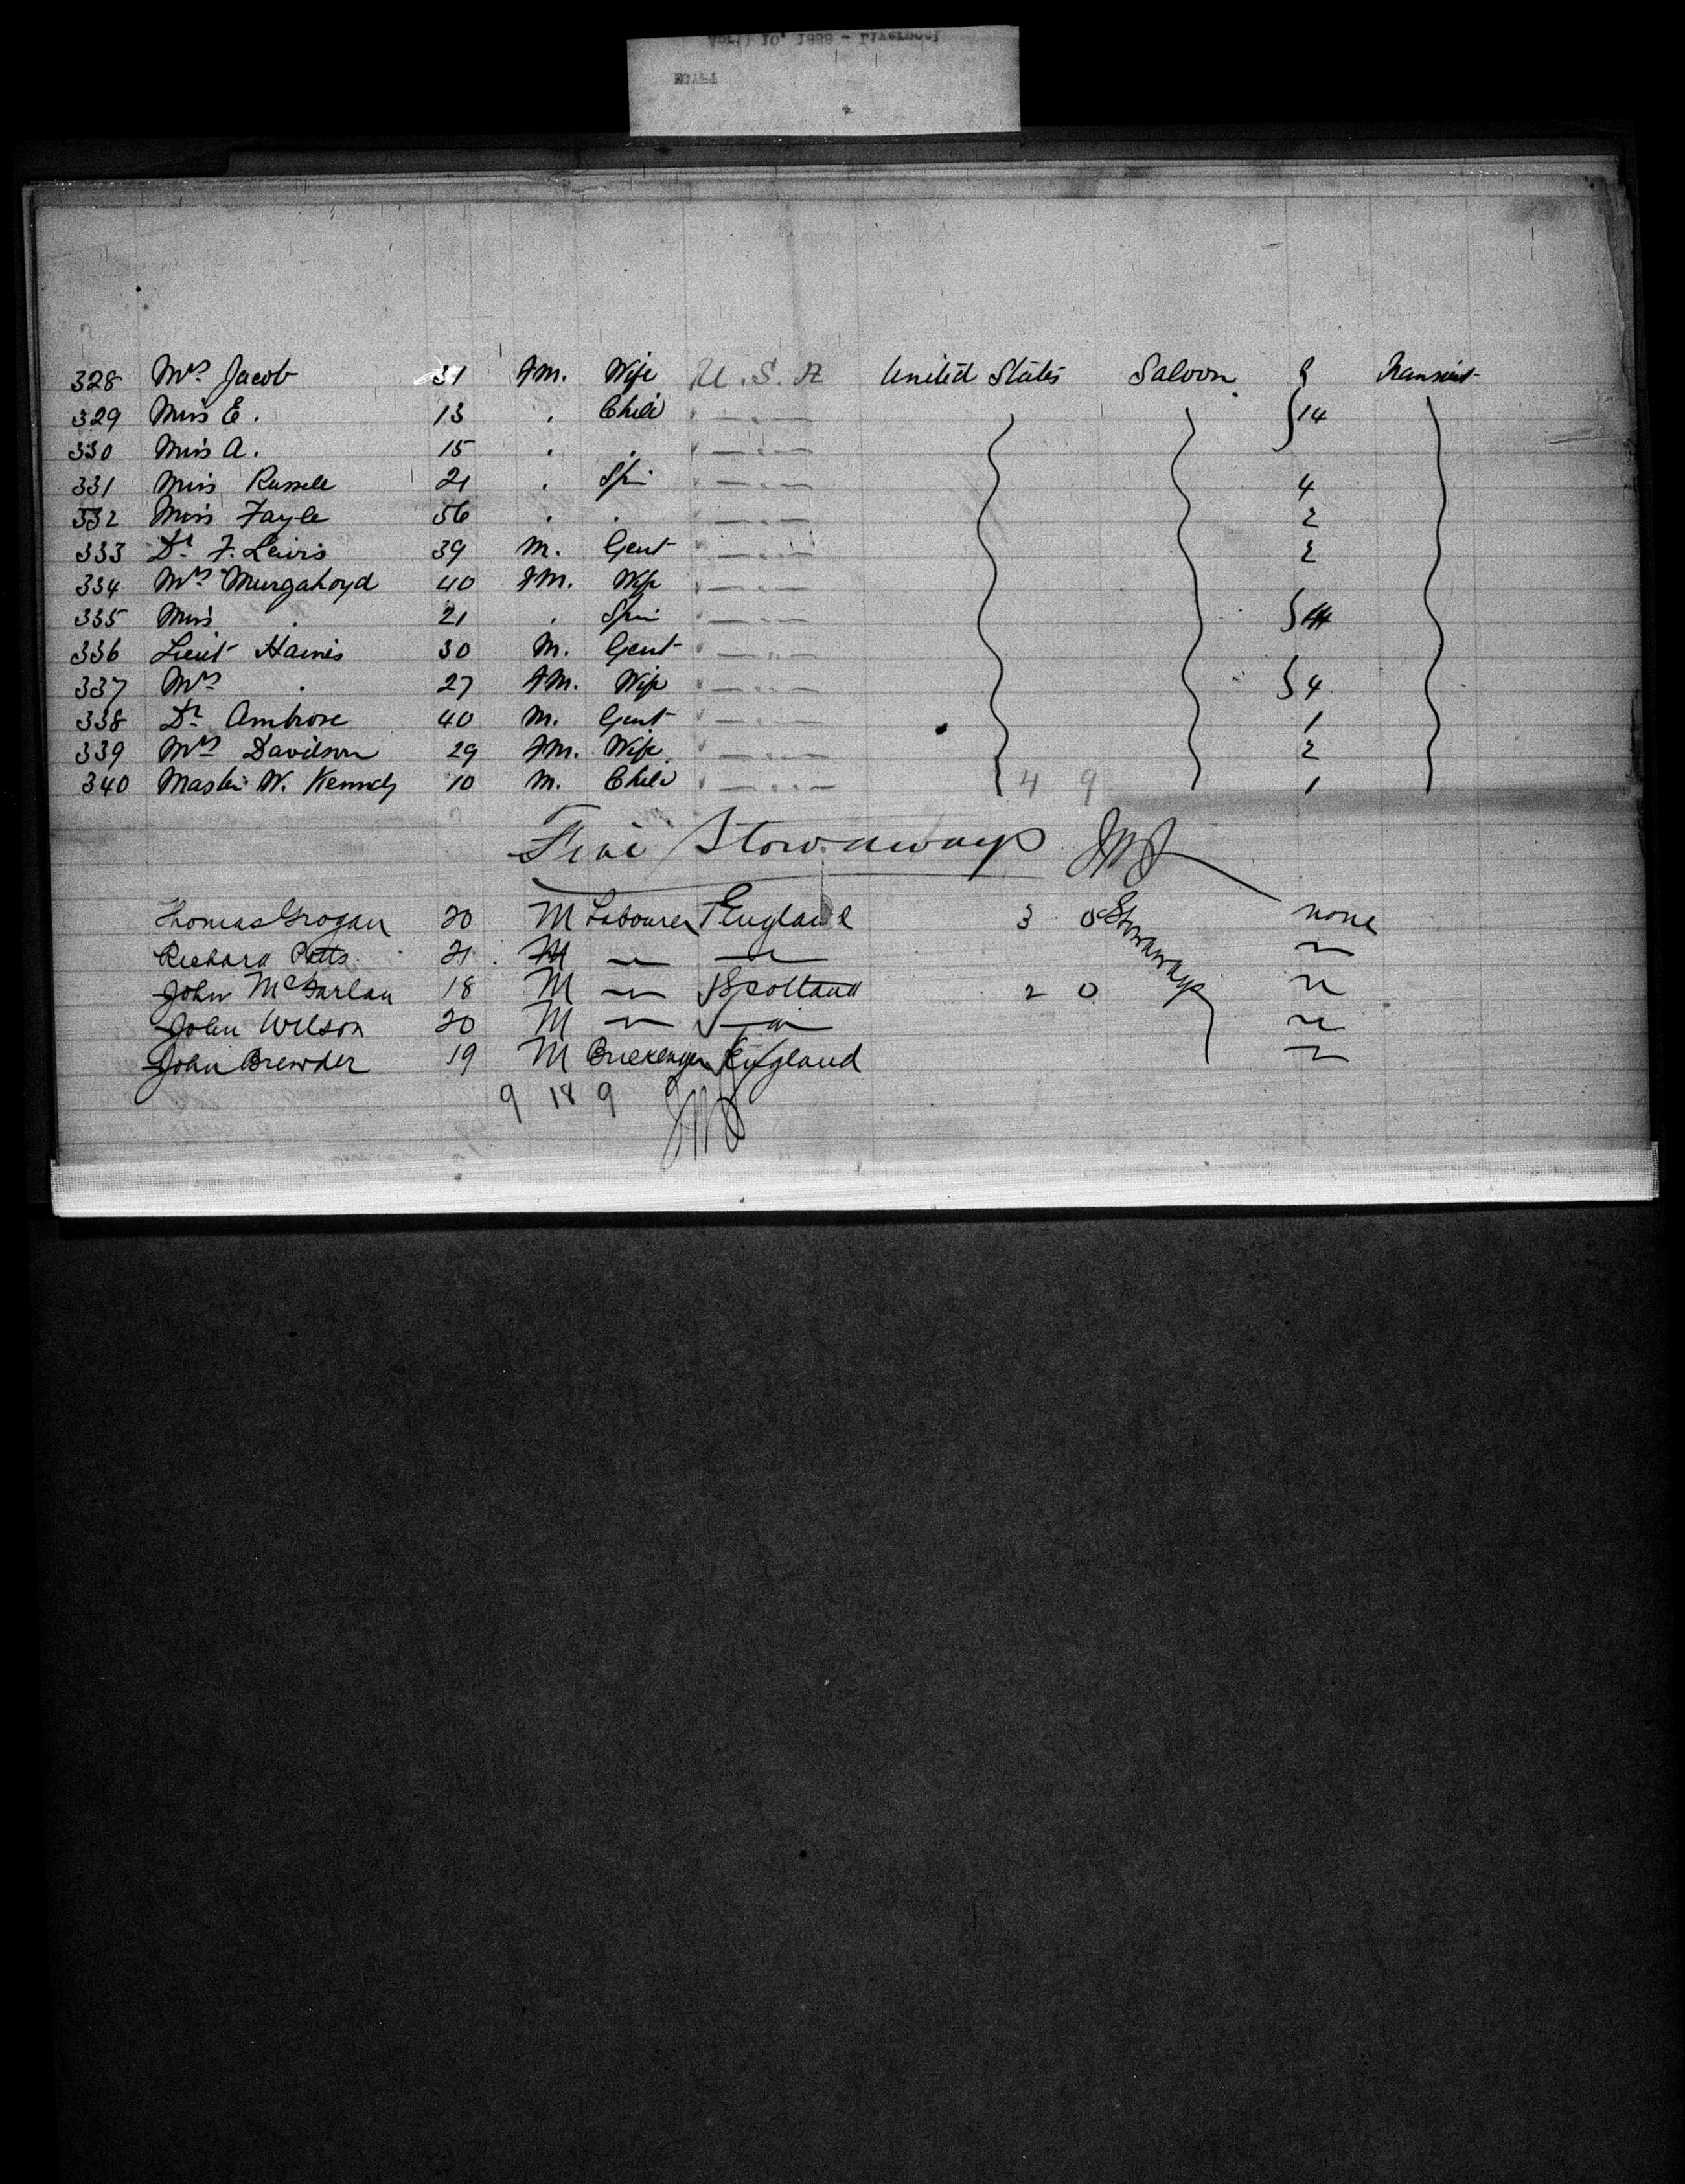 April 10, 1888 - Liverpool
EGYPT
328 Mrs Jacob 31 Fm. Wife U.S.A United States Saloon Transient
329 Miss E. 13 . Child " 14
330 Miss A. 15 . . "
331 Miss Russell 21 . Spin " 4
332 Miss Fayle 56 . . " 2
333 Dr F. Lewis 39 M. Gent " 2
334 Mrs Murgahoyd 40 Fm. Wife "
335 Miss . 21 . Spin "
336 Lieut Haines 30 M. Gent "
337 Mrs . 27 Fm. Wife " 4
338 Dr Ambrose 40 M. Gent " 1
339 Mrs Davidson 29 Fm. Wife " 2
340 Master W. Kennedy 10 M. Child " 4 9 1
Five Stowaways
Thomas Grogan 20 M Labourer England 3 0 Stowaways none
Richard Potts 21 M " " "
John McFarlan 18 M " Scotland 2 0 "
John Wilson 20 M " " "
John Brewder 19 M England "
9 18 9